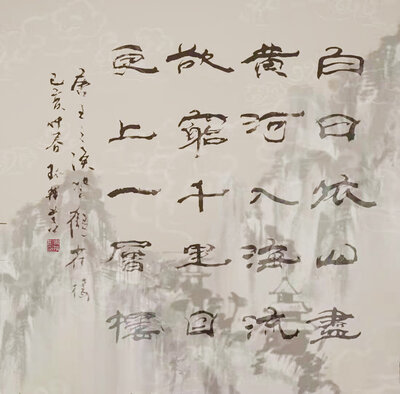 白日依山盡
黃河入海流
欲窮千里目
更上一層樓
唐王之渙登鸛雀樓
己亥時春